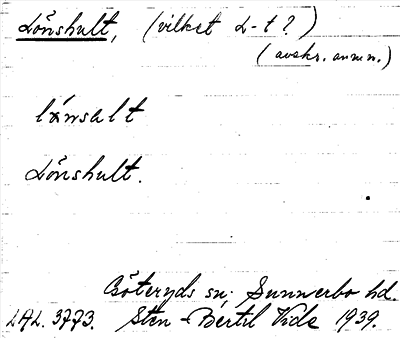 Lönshult, (vilket L-t?)
(avskr. anm.)
lǻnsalt
Lönshult.
Göteryds sn; Sunnerbo hd.
LAL. 3773. Sten-Bertil Vide 1939.